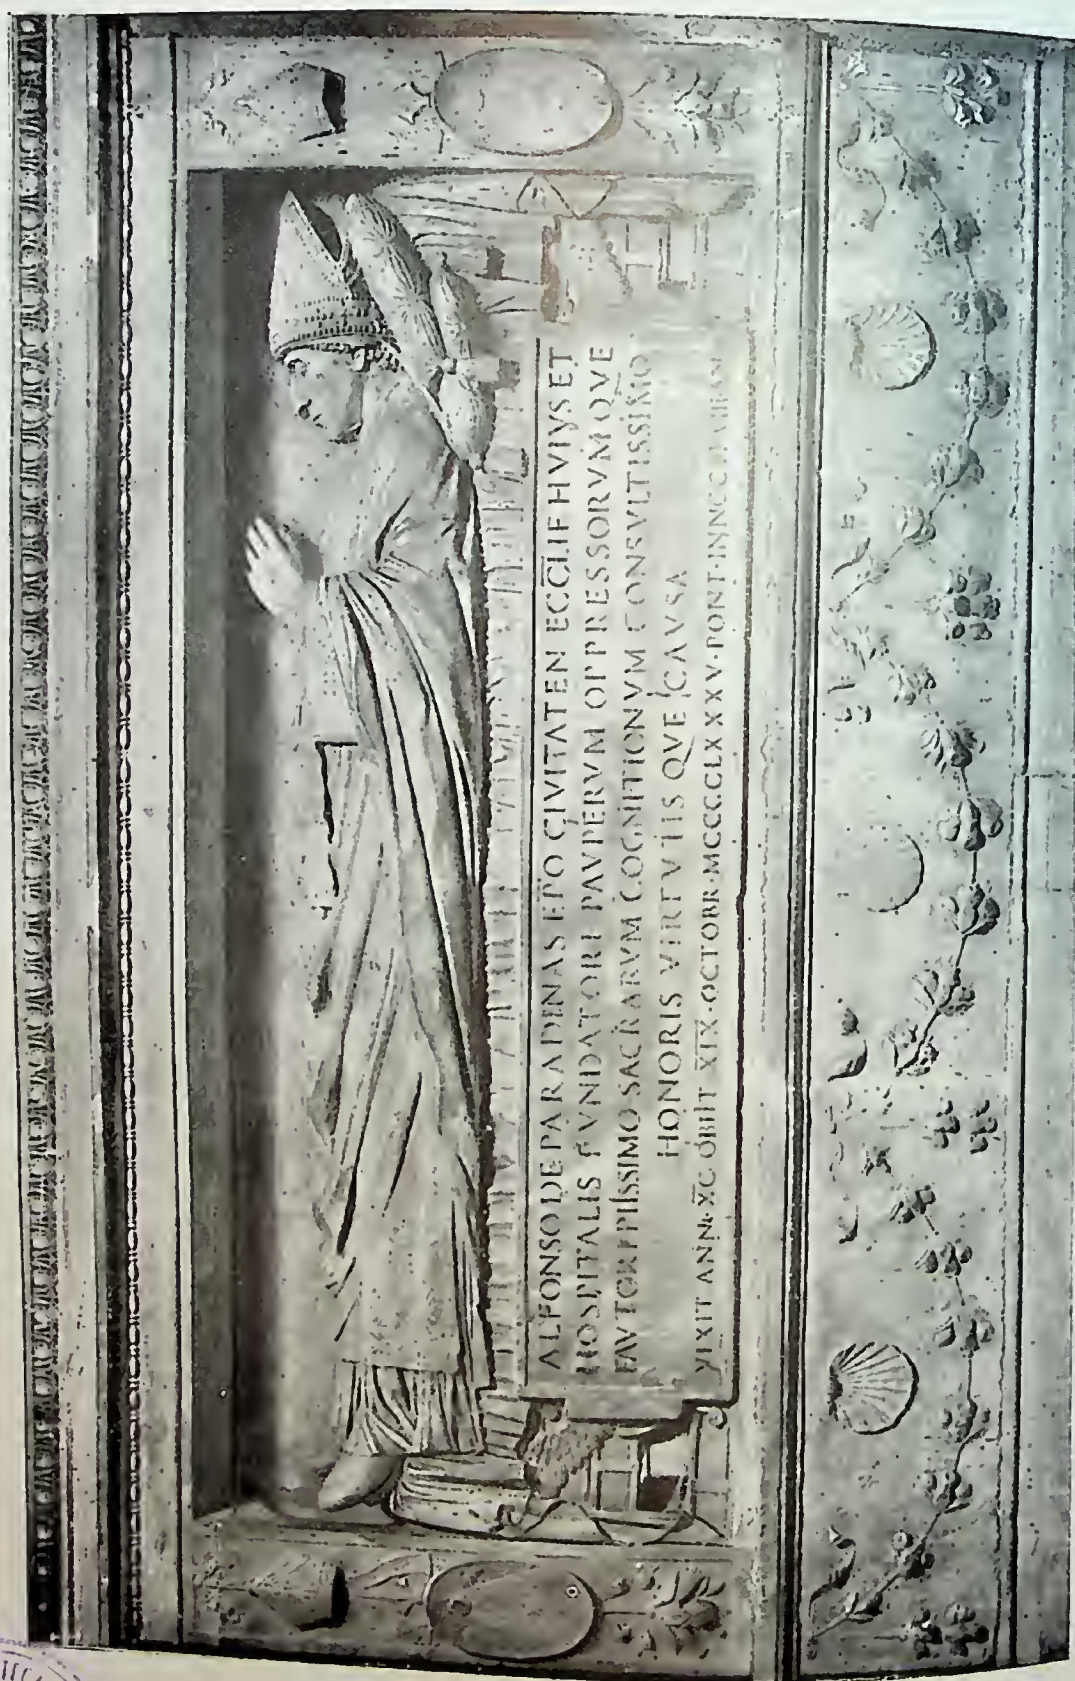 ALFONSO DE PARADINAS EPO CIVITATEN ECCLIE HVIVS ET
HOSPITALIS FVNDATORI PAVPERVM OPPRESSORVMQVE
FAVTORI PIISSIMO SACRARVM COGNITIONVM CONSVLTISSIMO
HONORIS VIRTVTIS QVE CAVSA
VIXIT ANN· XC OBIIT XIX·OCTOBR·MCCCCLXXXV·PONT·INNOC